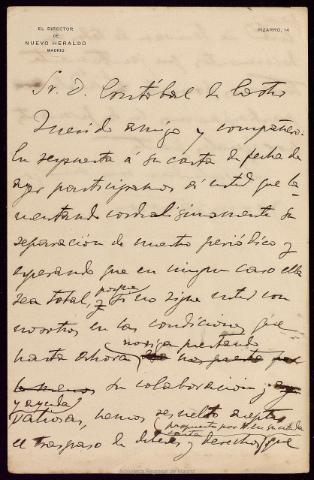 EL DIRECTOR
DE
NUEVO HERALDO
MADRID
PIZARRO, 14
Sr. D. Cristóbal de Castro
Querido amigo y compañero:
En respuesta á su carta de fecha de
ayer participamos á usted que la-
mentando cordialísimamente su
separación de nuestro periódico y
esperando que en ningún caso ella
sea total, porque
y si no sigue usted con
nosotros en las condiciones que
nos siga prestando
hasta ahora,
lo menos su colaboración
y ayuda
valiosas, hemos resuelto aceptar
propuesto por V. en su citada
carta
el traspaso de deberes y derechos que
Biblioteca Regional de Madrid